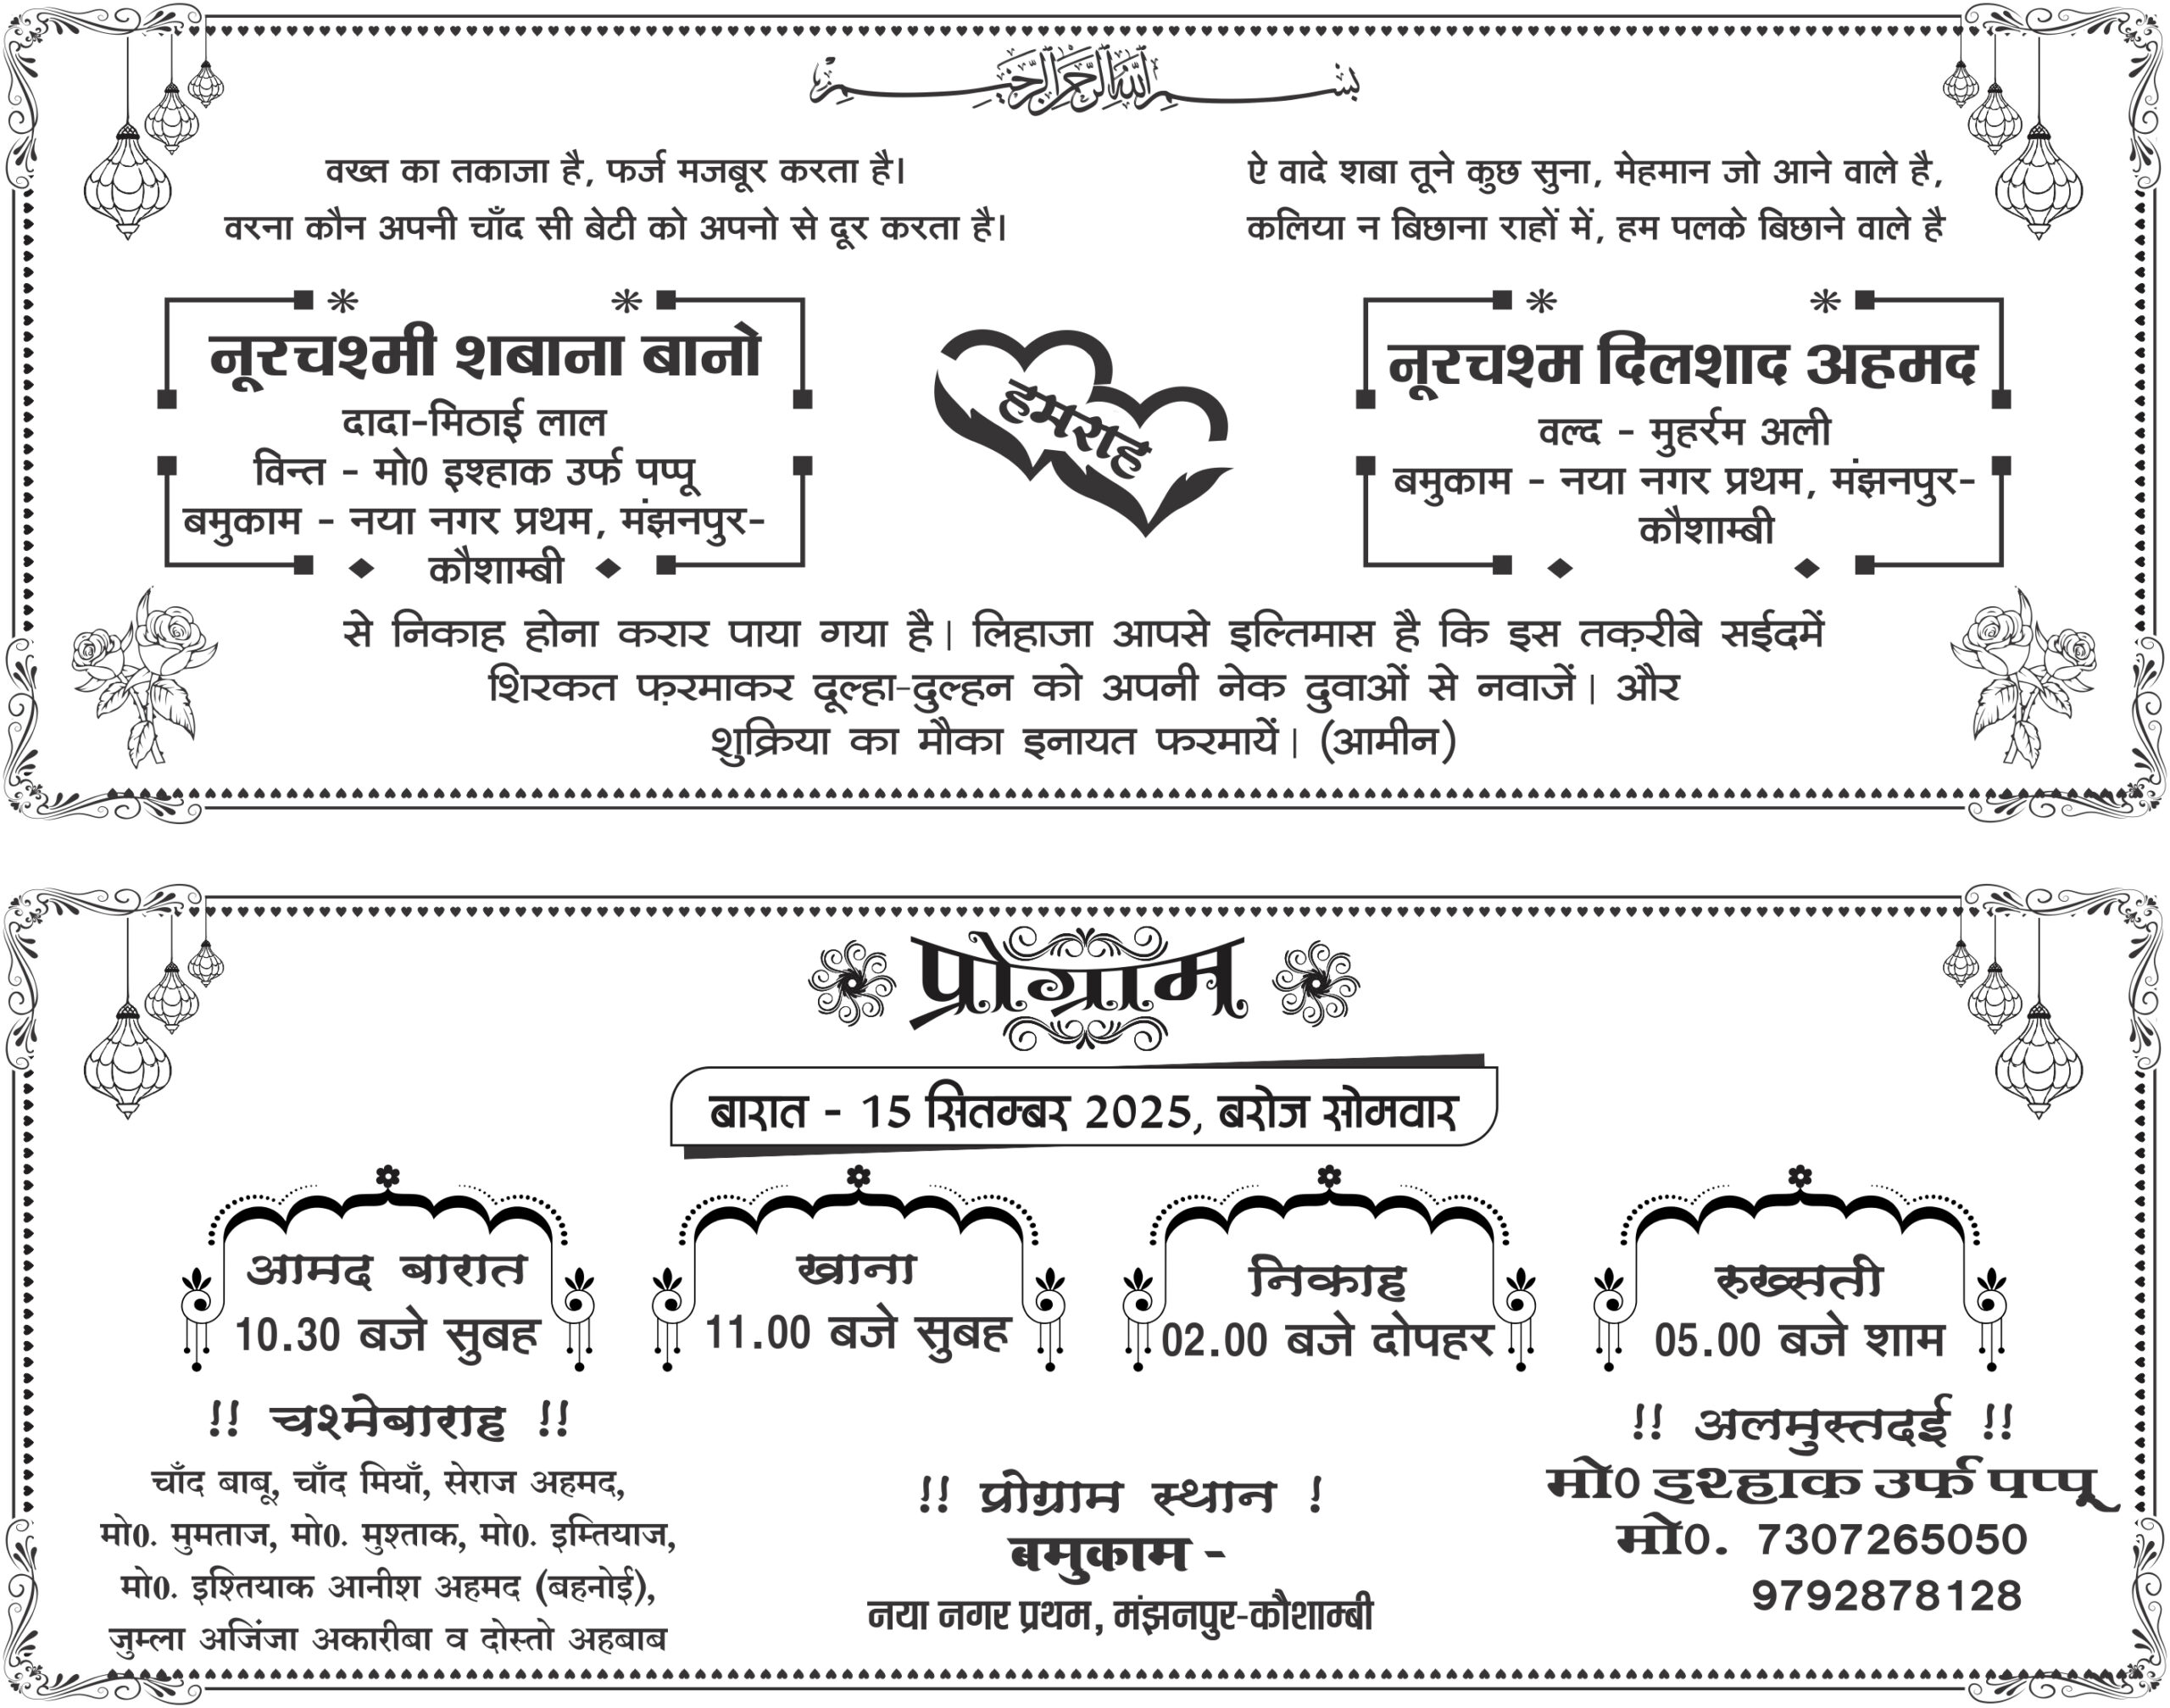 بسم الله الرحمن الرحيم
वख्त का तकाजा है, फर्ज मजबूर करता है।
वरना कौन अपनी चाँद सी बेटी को अपनो से दूर करता है।
ऐ वादे शबा तूने कुछ सुना, मेहमान जो आने वाले है,
कलिया न बिछाना राहों में, हम पलके बिछाने वाले है
नूरचश्मी शबाना बानो
दादा-मिठाई लाल
विन्त - मो0 इश्हाक उर्फ पप्पू
बमुकाम - नया नगर प्रथम, मंझनपुर-
कौशाम्बी
हमराह
नूरचश्म दिलशाद अहमद
वल्द - मुहर्रम अली
बमुकाम - नया नगर प्रथम, मंझनपुर-
कौशाम्बी
से निकाह होना करार पाया गया है। लिहाजा आपसे इल्तिमास है कि इस तक़रीबे सईदमें
शिरकत फ़रमाकर दूल्हा-दुल्हन को अपनी नेक दुवाओं से नवाजें। और
शुक्रिया का मौका इनायत फरमायें। (आमीन)
प्रोग्राम
बारात - 15 सितम्बर 2025, बरोज सोमवार
आमद बारात
10.30 बजे सुबह
खाना
11.00 बजे सुबह
निकाह
02.00 बजे दोपहर
रुख्सती
05.00 बजे शाम
!! चश्मेबाराह !!
चाँद बाबू, चाँद मियाँ, सेराज अहमद,
मो0. मुमताज, मो0. मुश्ताक, मो0. इम्तियाज,
मो0. इश्तियाक आनीश अहमद (बहनोई),
जुम्ला अजिंजा अकारीबा व दोस्तो अहबाब
!! प्रोग्राम स्थान !
बमुकाम -
नया नगर प्रथम, मंझनपुर-कौशाम्बी
!! अलमुस्तदई !!
मो0 इश्हाक उर्फ पप्पू
मो0. 7307265050
9792878128